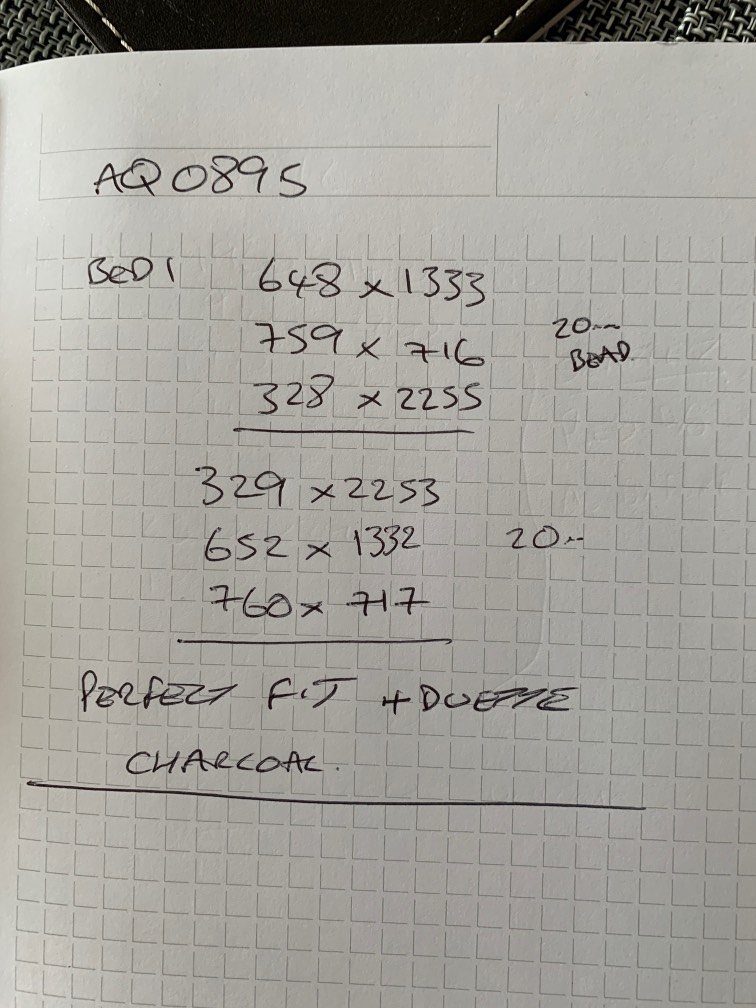 AQ0895
BED 1 648 x 1333
759 x 716
20mm
BEAD
328 x 2255
329 x 2253
652 x 1332 20mm
760 x 717
PERFECT FIT + DUETTE
CHARCOAL.